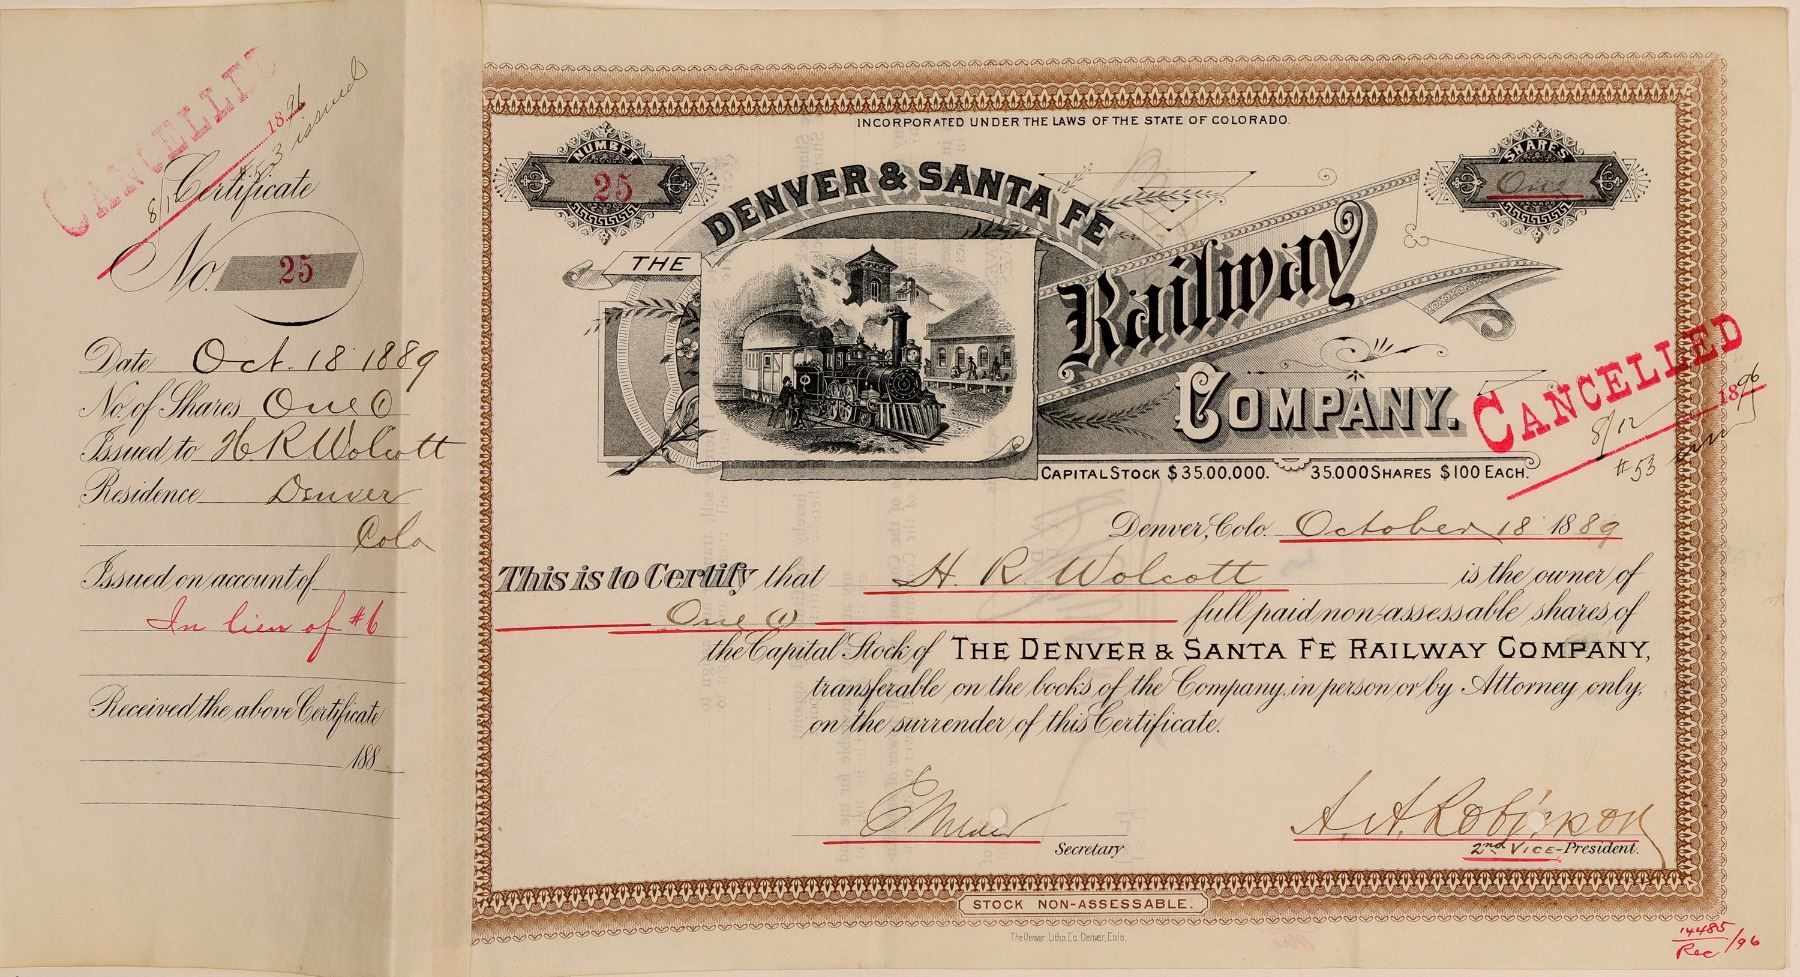 CANCELLED
1896
8/12 #53 issued
Certificate
No. 25
Date Oct. 18 1889
No. of Shares One (1)
Issued to H. R. Wolcott
Residence Denver
Colo
Issued on account of
In lieu of #6
Received the above Certificate
188
INCORPORATED UNDER THE LAWS OF THE STATE OF COLORADO.
NUMBER
25
SHARES
One
THE DENVER & SANTA FE
Railway
COMPANY.
CANCELLED
1896
8/12
#53
CAPITAL STOCK $35.00,000. 35.000 SHARES $100 EACH.
Denver, Colo. October 18 1889
This is to Certify that H. R. Wolcott is the owner of
One (1) full paid non-assessable shares of
the Capital Stock of THE DENVER & SANTA FE RAILWAY COMPANY,
transferable on the books of the Company, in person or by Attorney only,
on the surrender of this Certificate.
E Wilder A. A. Robinson
Secretary 2nd VICE-President.
STOCK NON-ASSESSABLE.
The Denver Litho. Co. Denver, Colo.
14485
Rec /96